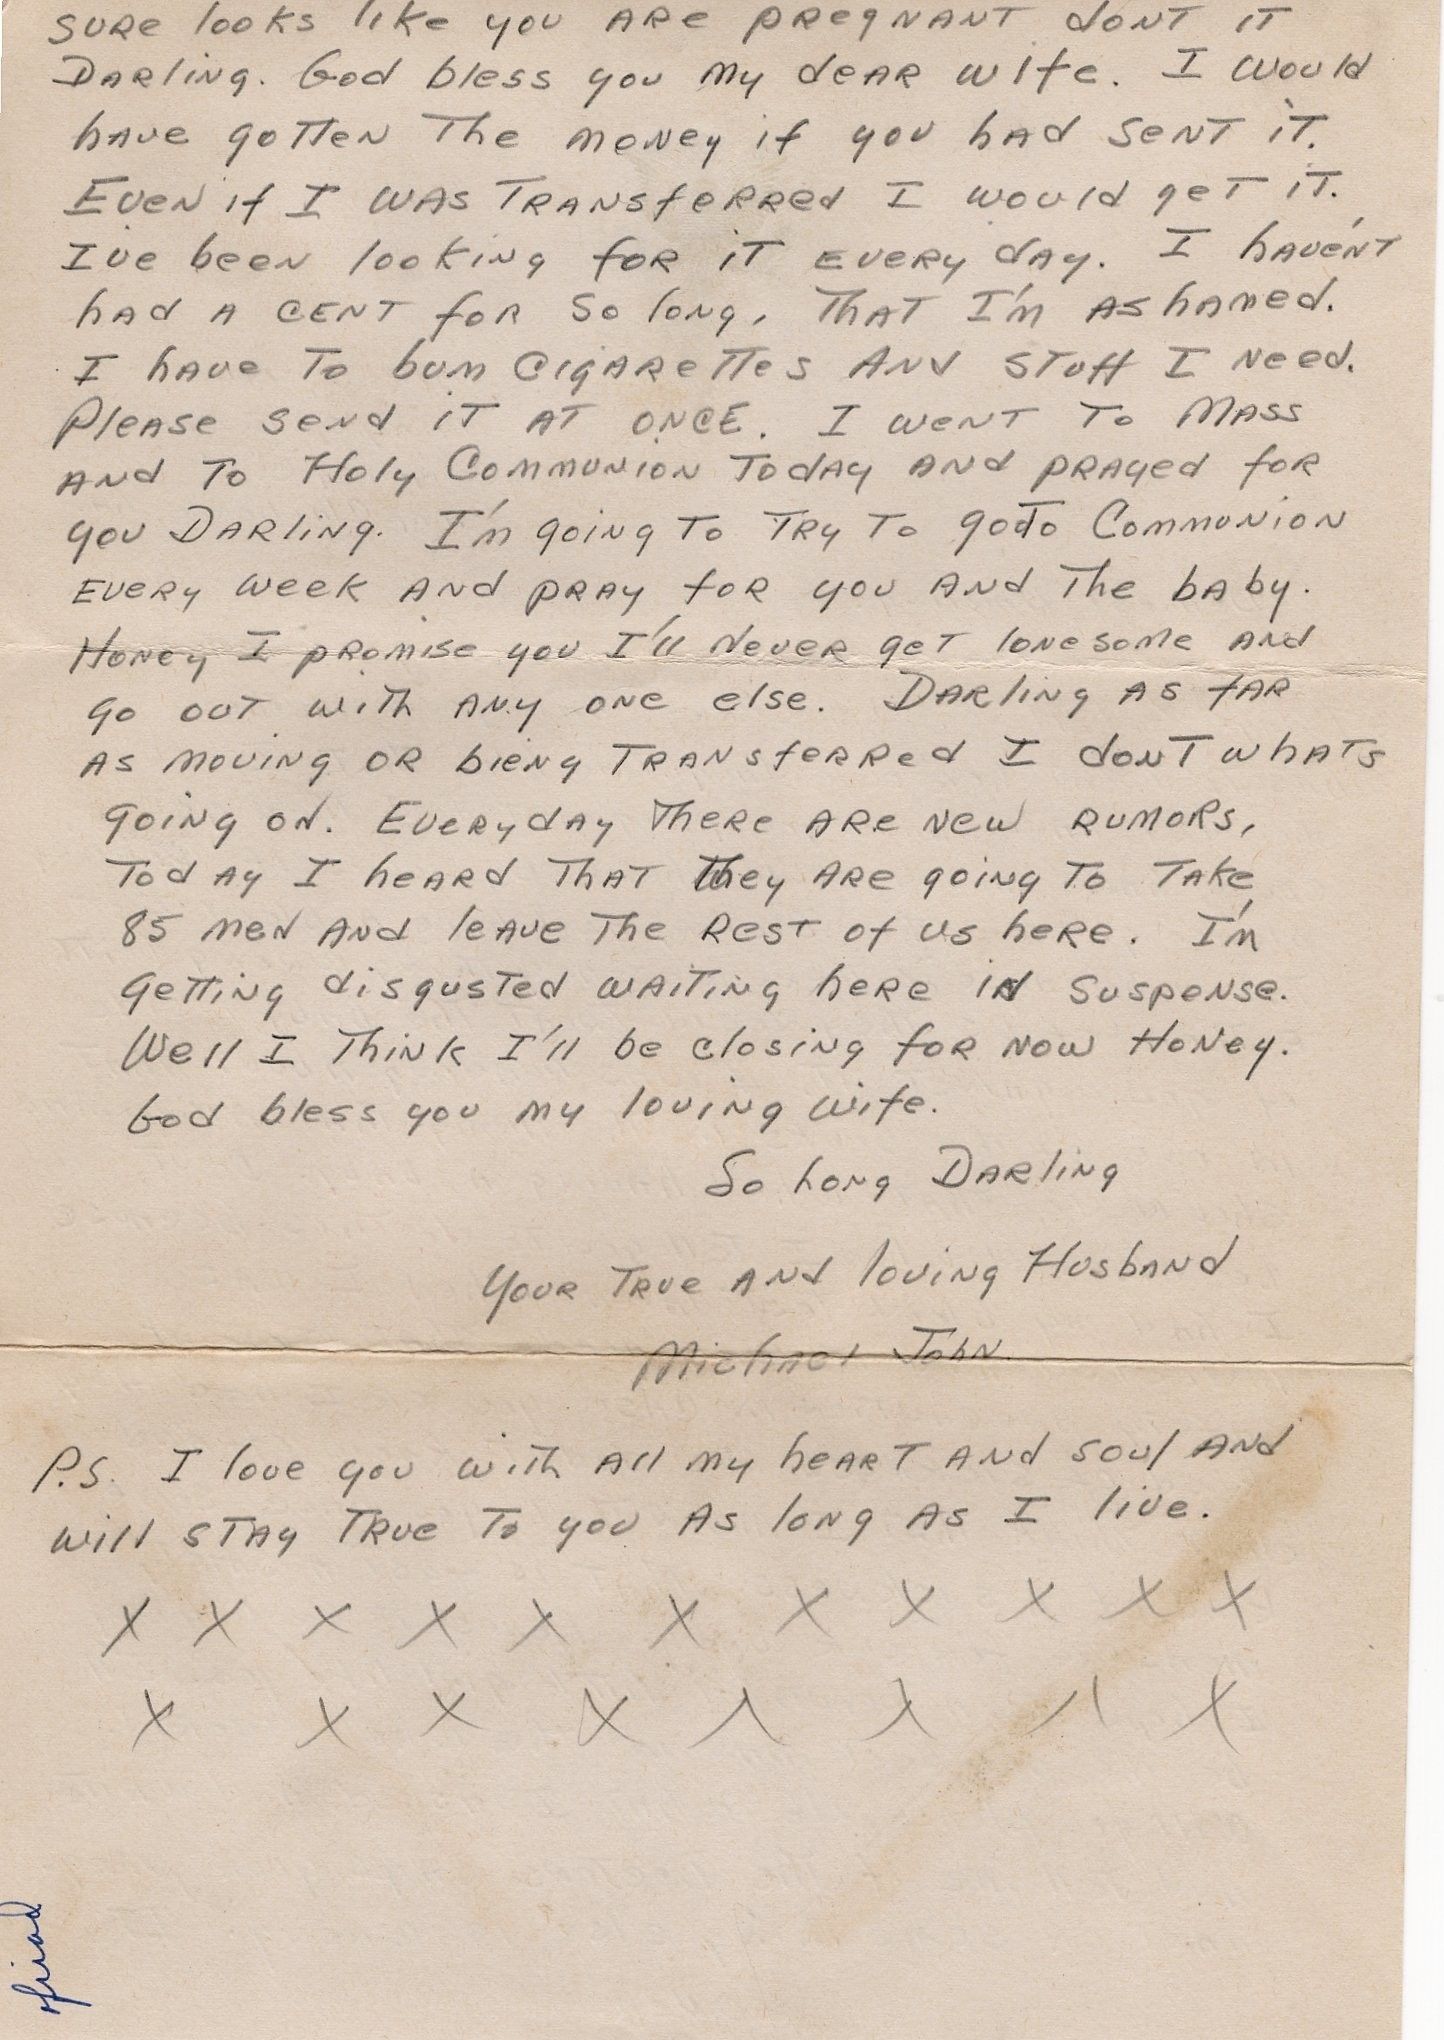 sure looks like you are pregnant dont it
Darling. God bless you my dear wife. I would
have gotten the money if you had sent it.
Even if I was transferred I would get it.
I've been looking for it every day. I haven't
had a cent for so long, that I'm ashamed.
I have to bum cigarettes and stuff I need.
Please send it at once. I went to Mass
and to Holy Communion today and prayed for
you Darling. I'm going to try to goto Communion
every week and pray for you and the baby.
Honey I promise you I'll never get lonesome and
go out with any one else. Darling as far
as moving or bieng transferred I dont whats
going on. Everyday there are new rumors,
today I heard that they are going to take
85 men and leave the rest of us here. I'm
getting disgusted waiting here in suspense.
Well I think I'll be closing for now Honey.
God bless you my loving wife.
So Long Darling
Your true and loving Husband
Michael John
P.S. I love you with all my heart and soul and
will stay true to you as long as I live.
X X X X X X X X X X X
X X X X X X X X